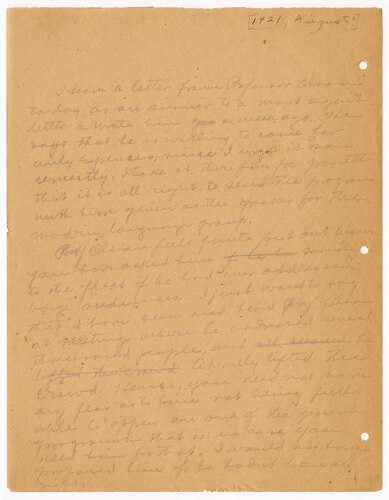 [1921, August?]
I have a letter from Professor
today as an answer to a most urgent
letter I wrote him a week ago. He
says that he is willing to come for
only expenses, since I urged so
earnestly. I take it therefore for granted
that it is all right to send the program
with him given as the speaker for the
modern language group.
Prof. feels quite put out because
you have asked him to
to the effect if he had ever addressed
large audiences. I just want to say
that I have seen and heard Prof.
at meetings where he addressed several
thousand people, and he
literally lifted the
crowd. Hence, you need not have
any fear as to him not being fully
able to appear on one of the general
programs that is in case you
need him for that. I would not have
proposed him if he hadn't been all
right.